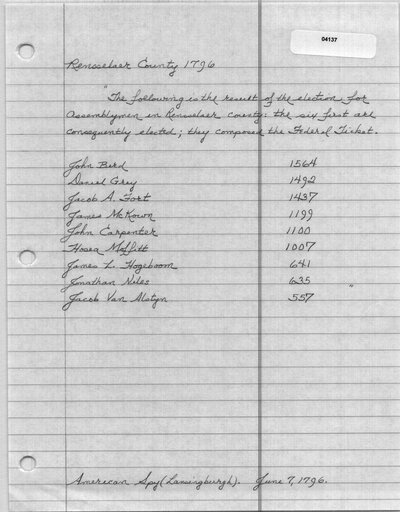 04137
Rensselaer County 1796
"The following is the result of the election for
Assemblymen in Rensselaer county: the six first are
consequently elected; they composed the Federal Ticket.
John Bird 1564
Daniel Gray 1492
Jacob A. Fort 1437
James McKown 1199
John Carpenter 1100
Hosea Moffitt 1007
James L. Hogeboom 641
Jonathan Niles 635
Jacob Van Alstyn 557 "
American Spy (Lansingburgh). June 7, 1796.